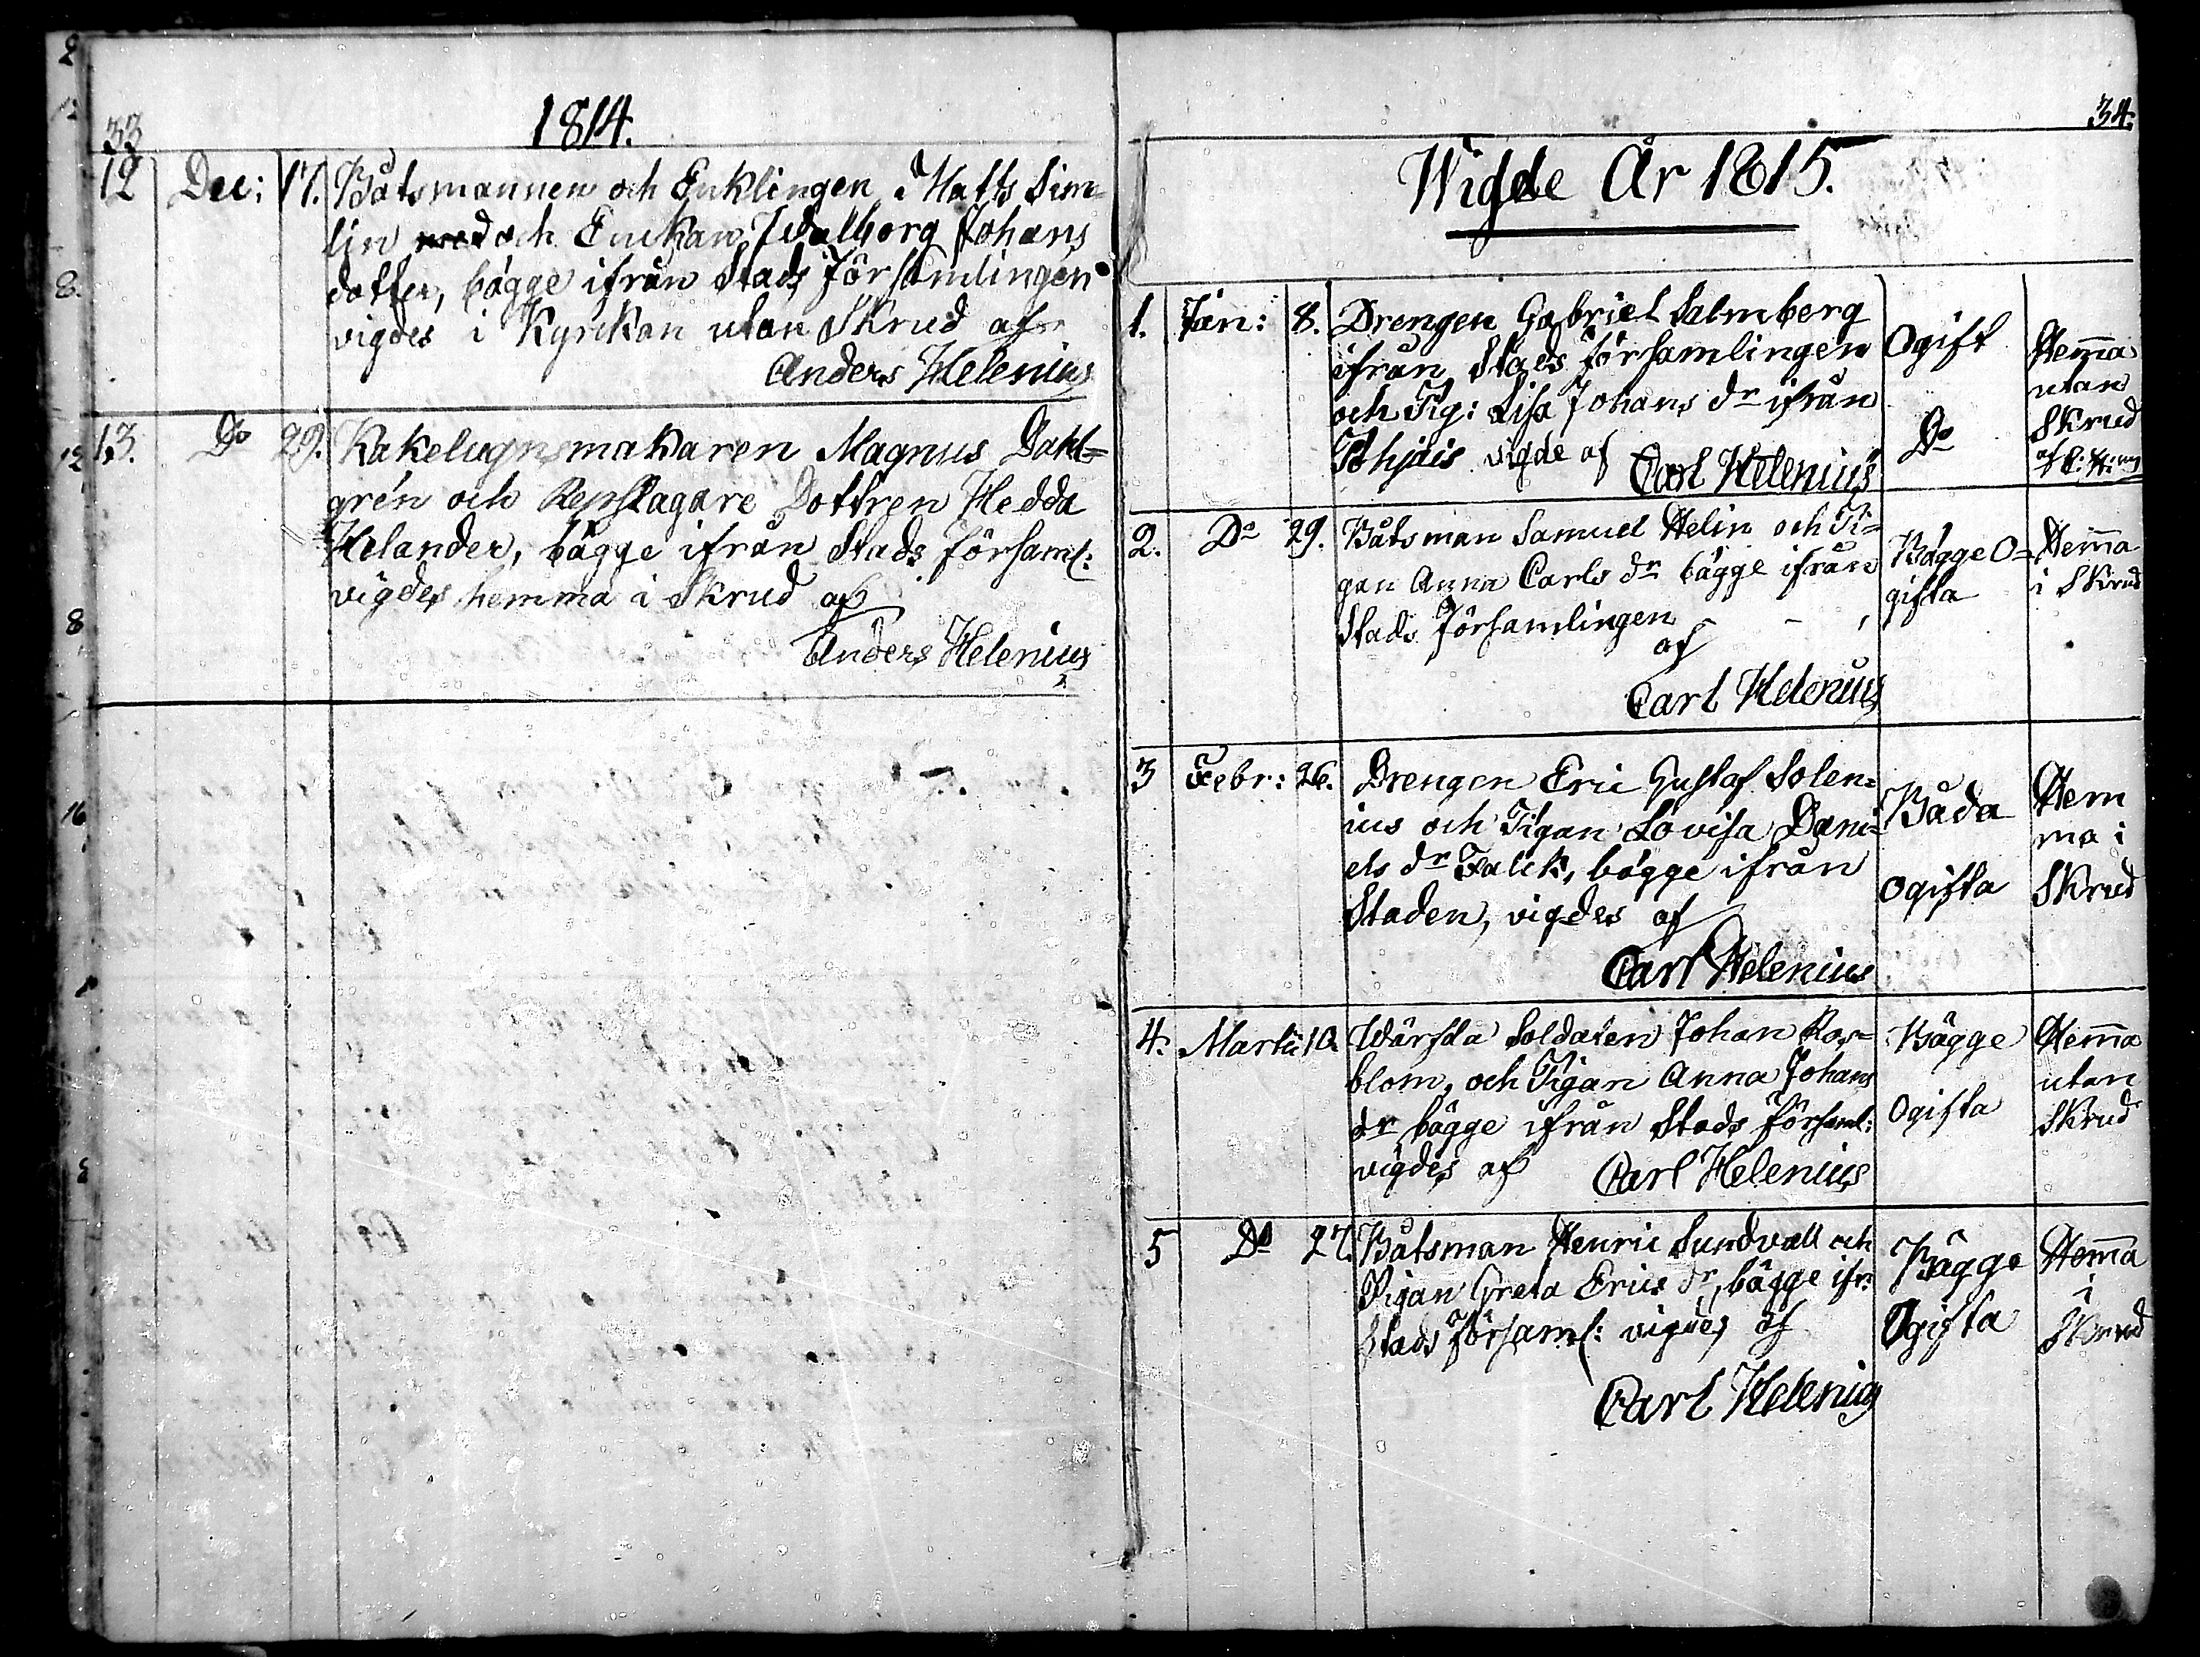 33
1814.
12 Dec: 17. Båtsmannen och Enklingen Matts Sim=
lin och Enckan Walborg Johans
dotter, bägge ifrån Stads församlingen
vigdes i Kyrckan utan Skrud af
Anders Helenius
13. Do 29. Kakelugnsmakaren Magnus Dahl=
grén och Repslagare Dottren Hedda
Helander, bägge ifrån Stads församl:
vigdes hemma i Skrud af
Anders Helenius
34.
Wigde År 1815.
1. Jan: 8. Drengen Gabriel Salmberg
ifrån Stads församlingen Ogift Hem̄a
och Pig: Lisa Johans dr ifrån utan
Pohjais vigde af Do Skrud
Carl Helenius
2. Do 29. Båtsman Samuel Helin och Pi= Hem̄a
gan Anna Carls dr bägge ifrån Bägge O= i Skrud
Stads församlingen gifta
af
Carl Helenius
3 Febr: 26. Drengen Eric Gustaf Solen= Hem
ius och Pigan Lovisa Dani= Båda ma i
els dr Falck, bägge ifrån Ogifta Skrud
Staden, vigdes af
Carl Helenius
4. Martii 10. Wärfda Soldaten Johan Ros= Bägge Hem̄a
blom, och Pigan Anna Johans utan
dr bägge ifrån Stads församl: Ogifta Skrud
vigdes af Carl Helenius
5 Do 27. Båtsman Henric Sundvall och Bägge Hem̄a
Pigan Greta Erics dr, bägge ifr: i
Stads församl: vigdes af Ogifta Skrud
Carl Helenius